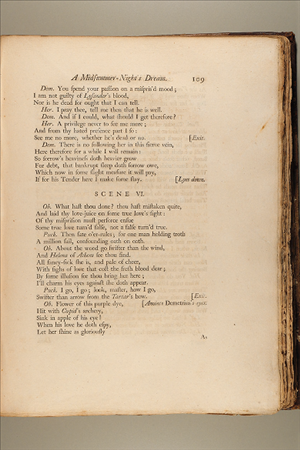 A Midsummer-Night's Dream. 109
Dem. You spend your passion on a mispris'd mood;
I am not guilty of Lysander's blood,
Nor is he dead for ought that I can tell.
Her. I pray thee, tell me then that he is well.
Dem. And if I could, what should I get therefore?
Her. A privilege never to see me more;
And from thy hated presence part I so:
See me no more, whether he's dead or no. [Exit.
Dem. There is no following her in this fierce vein,
Here therefore for a while I will remain:
So sorrow's heaviness doth heavier grow
For debt, that bankrupt sleep doth sorrow owe,
Which now in some slight measure it will pay,
If for his Tender here I make some stay. [Lyes down.
SCENE VI.
Ob. What hast thou done? thou hast mistaken quite,
And laid thy love-juice on some true love's sight:
Of thy misprision must perforce ensue
Some true love turn'd false, not a false turn'd true.
Puck. Then fate o'er-rules, for one man holding troth
A million fail, confounding oath on oath.
Ob. About the wood go swifter than the wind,
And Helena of Athens see thou find.
All fancy-sick she is, and pale of cheer,
With sighs of love that cost the fresh blood dear;
By some illusion see thou bring her here;
I'll charm his eyes against she doth appear.
Puck. I go, I go; look, master, how I go,
Swifter than arrow from the Tartar's bow. [Exit.
Ob. Flower of this purple dye, [Anoints Demetrius's eyes.
Hit with Cupid's archery,
Sink in apple of his eye!
When his love he doth espy,
Let her shine as gloriously
As